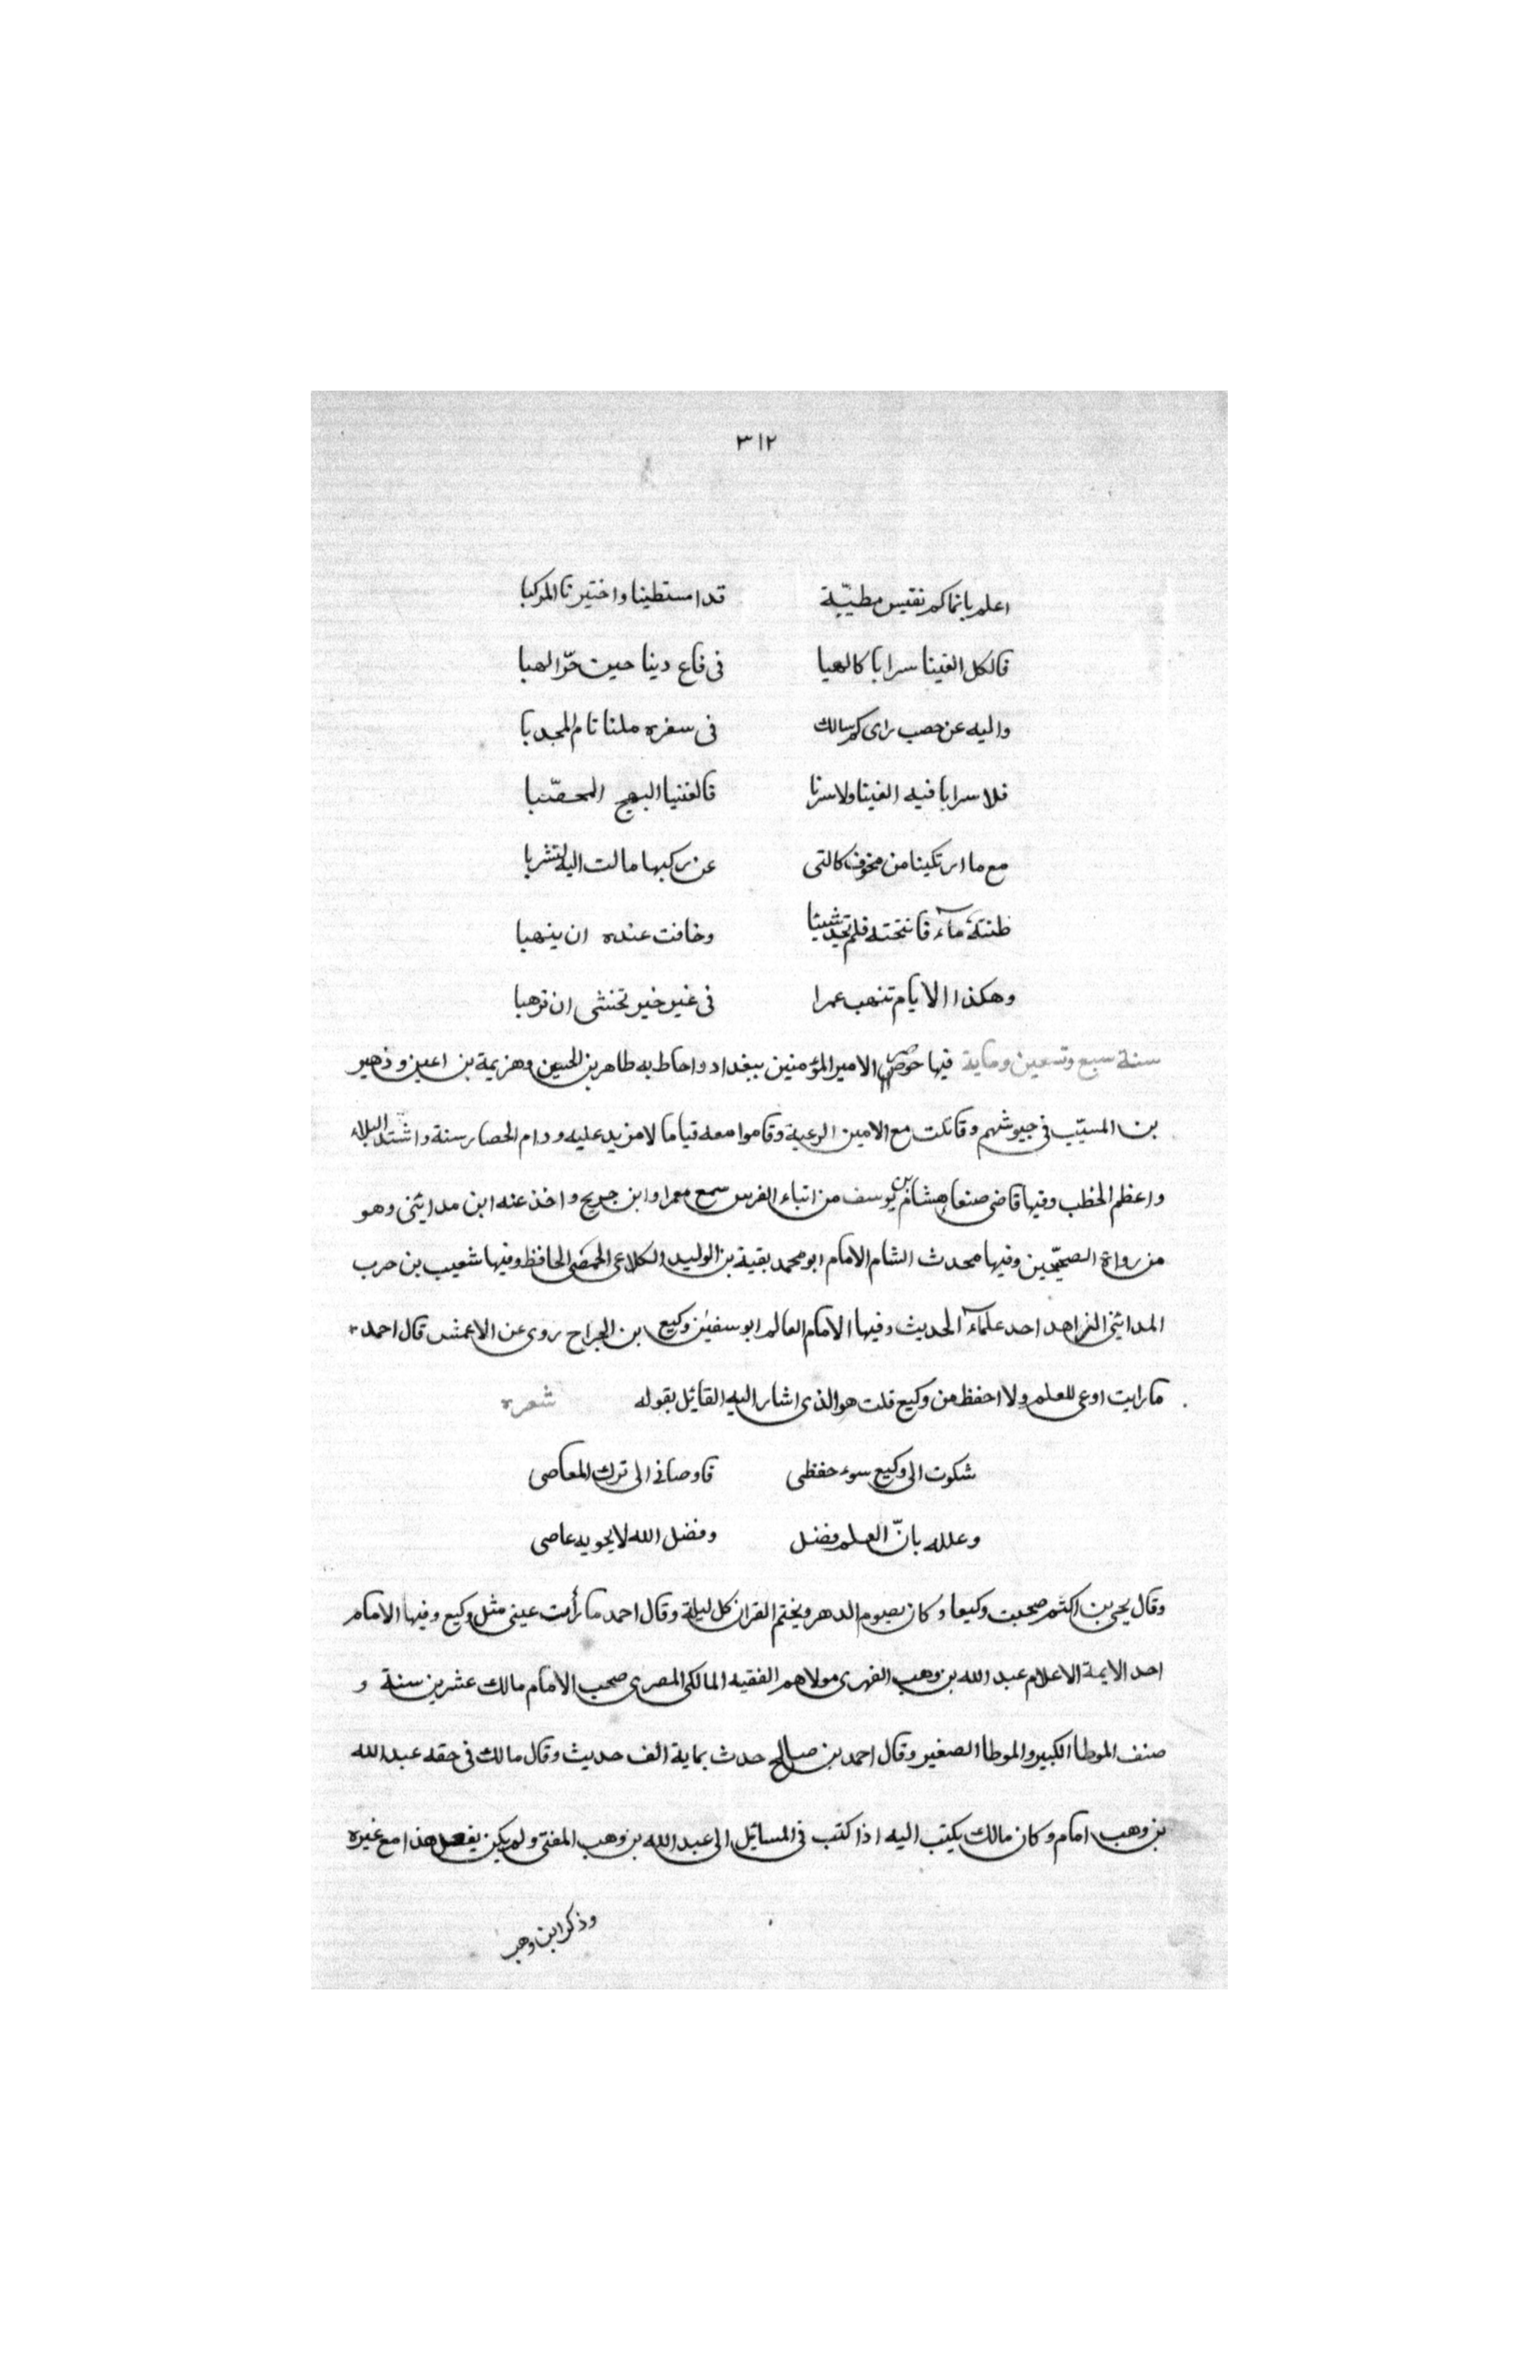 ٣١٢
اعلم بانما كم نفيس مطيّبة قد امستطينا واختيرنا المركبا
فالكل الفينا سرابا كالهبا فى قاع دينا حين حرّ الهبا
واليه عن خصب راى كم سالك فى سفره ملنا نام المجدبا
فلا سرابا فيه الفينا ولا سرنا فالفنيا البهج المخصّبا
مع ما ارتكبنا من مخوف كالتى عن ركبها مالت اليه لتشربا
ظننته ماء فانتحته فلم تجد شيئا وخافت عنده ان ينهبا
وهكذا الايام تنهب عمرا فى غير خير نختشى ان تذهبا
سنة سبع وتسعين وماية فيها حوصر الامير المؤمنين ببغداد واحاط به طاهر بن الحسين وهزيمة بن اعين وذهير
بن المسيّب فى جيوشهم وقاتلت مع الامين الرعية وقاموا معه قياما لا مزيد عليه ودام الحصار سنة واشتد البلاء
واعظم الخطب وفيها قاضى صنعا هشام بن يوسف من ابناء الفرس سمع معمرا وابن جريج واخذ عنه ابن مدايني وهو
من رواة الصحيحين وفيها محدث الشام الامام ابو محمد بقية بن الوليد الكلاعى الحمصى الحافظ وفيها شعيب بن حرب
المدايني الزاهد احد علماء الحديث وفيها الامام العالم ابو سفين وكيع بن الجراح روى عن الاعمش قال احمد
ما رايت اوعى للعلم ولا احفظ من وكيع قلت هو الذى اشار اليه القائل بقوله شعره
شكوت الى وكيع سوء حفظى فاوصانى الى ترك المعاصى
وعلله بانّ العلم فضل وفضل الله لا يحويه عاصى
وقال يحيى بن اكثم صحبت وكيعا وكان يصوم الدهر ويختم القران كل ليلة وقال احمد ما رأت عينى مثل وكيع وفيها الامام
احد الايمة الاعلام عبد الله بن وهب الفهرى مولاهم الفقيه المالكى المصرى صحب الامام مالك عشرين سنة و
صنف الموطا الكبير والموطا الصغير وقال احمد بن صالح حدث بماية الف حديث وقال مالك فى حقه عبد الله
بن وهب امام وكان مالك يكتب اليه اذا كتب فى المسائل الى عبد الله بن وهب المفتى ولم يكن يفعل هذا مع غيره
وذكر ابن وهب